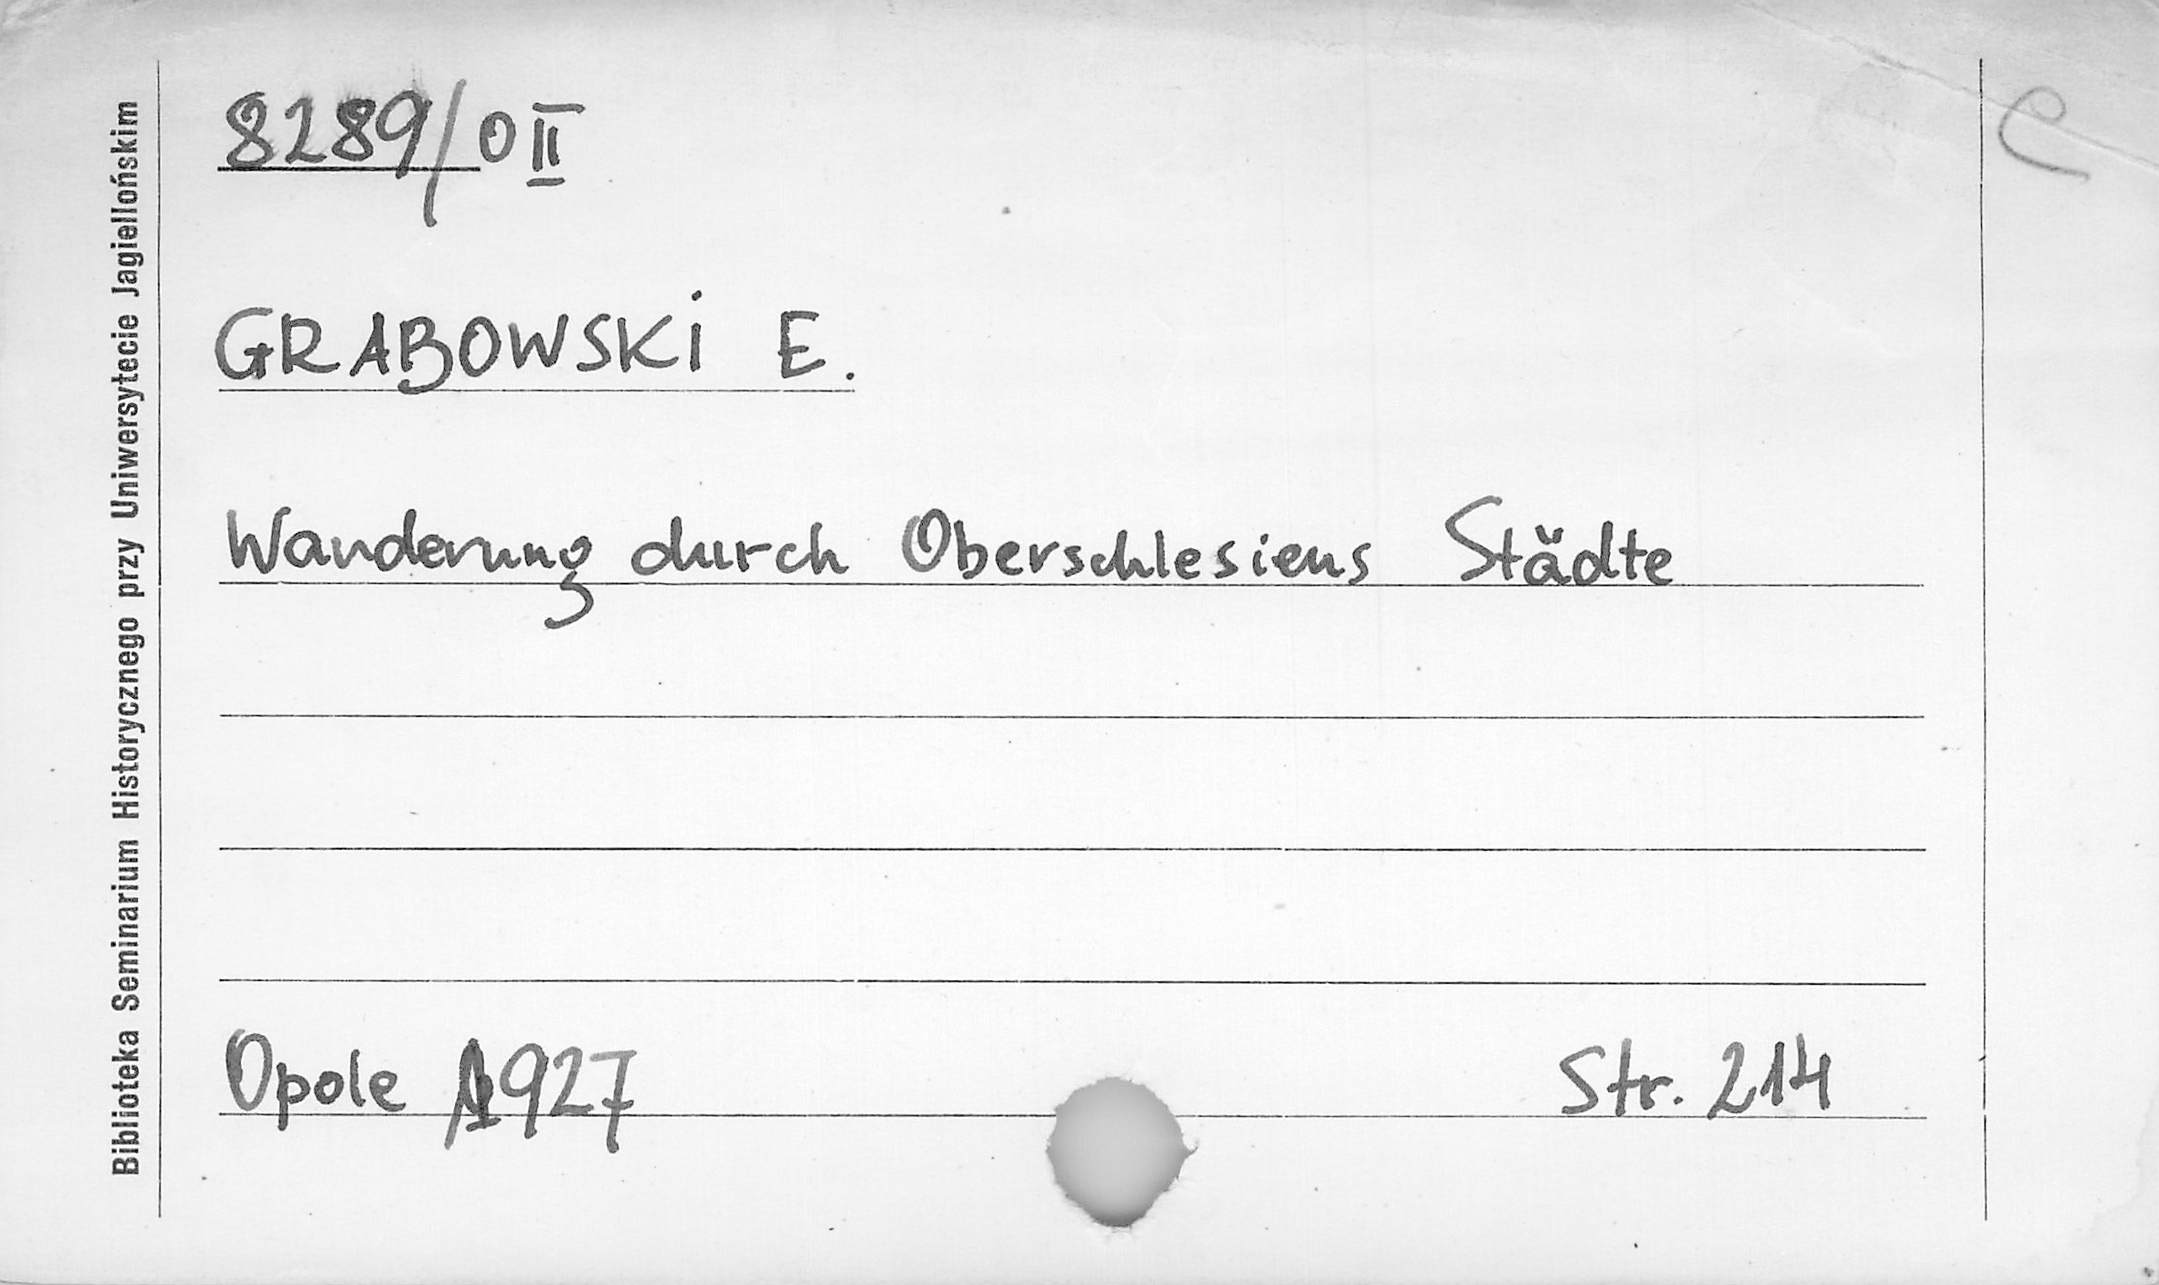 8289/O II
GRABOWSKI E.
Wanderung durch Oberschlesiens Städte
Opole 1927
Str. 214
Biblioteka Seminarium Historycznego przy Uniwersytecie Jagiellońskim